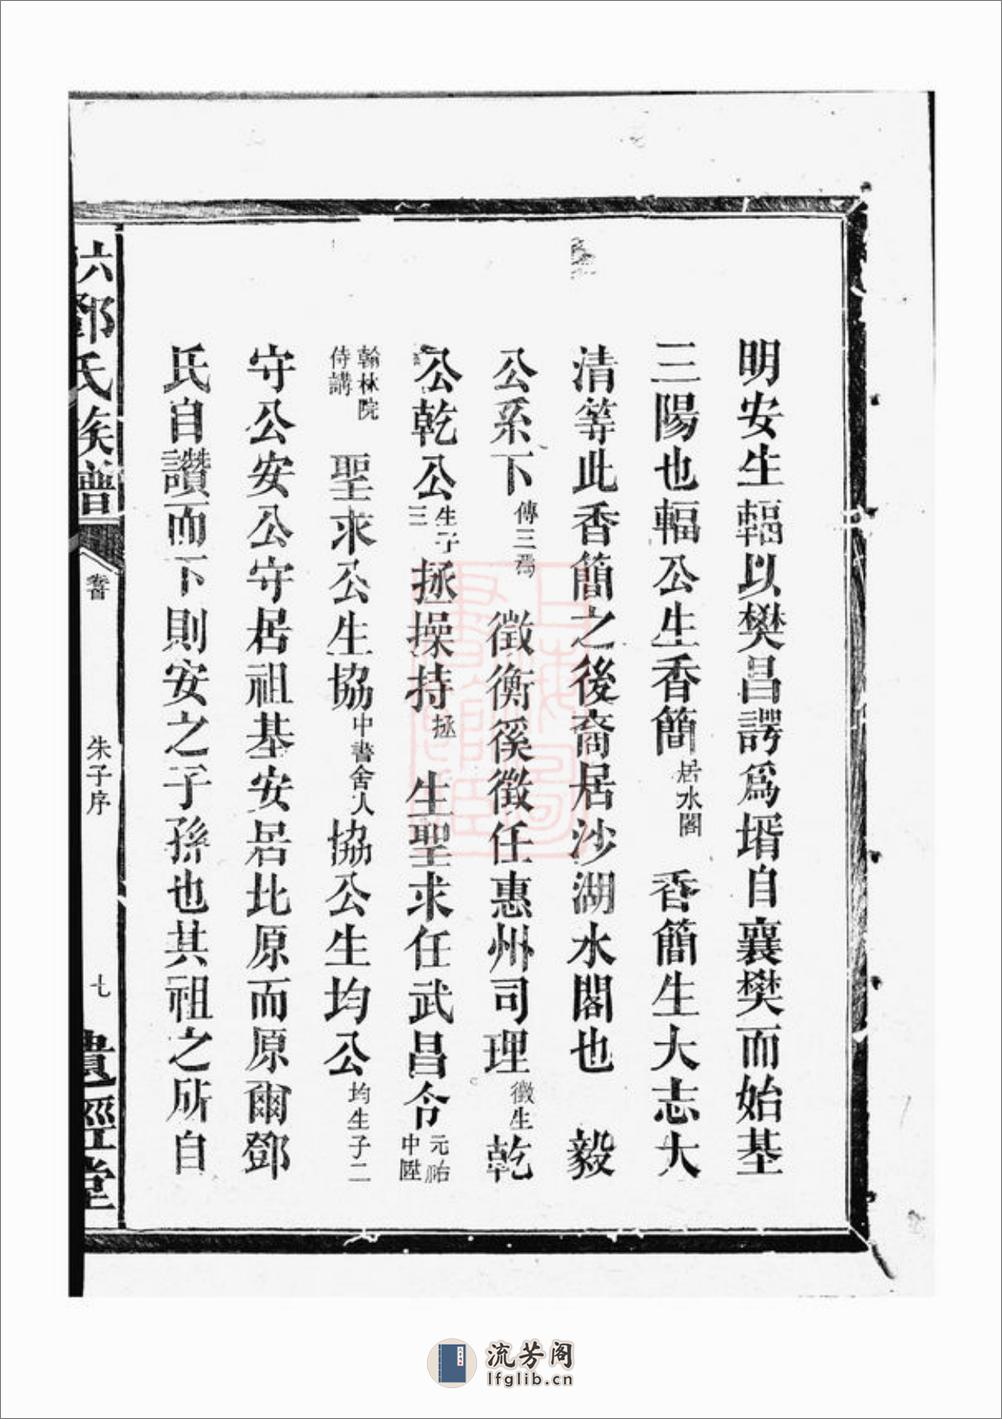 明安生輻以樊昌諤爲壻自襄樊而始基
三陽也輻公生香簡居水閣香簡生大志大
清等此香簡之後裔居沙湖水閣也毅
公系下傳三焉徵衡徯徵任惠州司理徵生乾
公乾公生子三拯操持拯生聖求任武昌令元祐中陞
翰林院侍講聖求公生協中書舍人協公生均公均生子二
守公安公守居祖基安居比原而原爾鄧
氏自讚而下則安之子孫也其祖之所自
六鄧氏族譜
朱子序
七
遺經堂
流芳阁
lfglib.cn